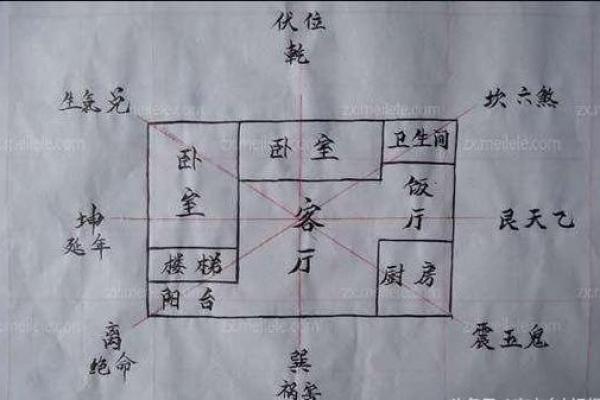 伏位
乾
生氣兑
坎六煞
zx.meilele.com
zx.meilele.com
卧室
卧室
卫生间
饭厅
坤
延年
客厅
艮天乙
楼梯
厨房
阳台
zx.meilele.com
离
绝命
震五鬼
巽
祸害